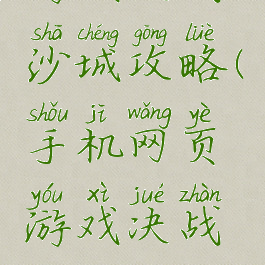 shā chéng gōng lüè
沙城攻略(
shǒu jī wǎng yè
手机网页
yóu xì jué zhàn
游戏决战